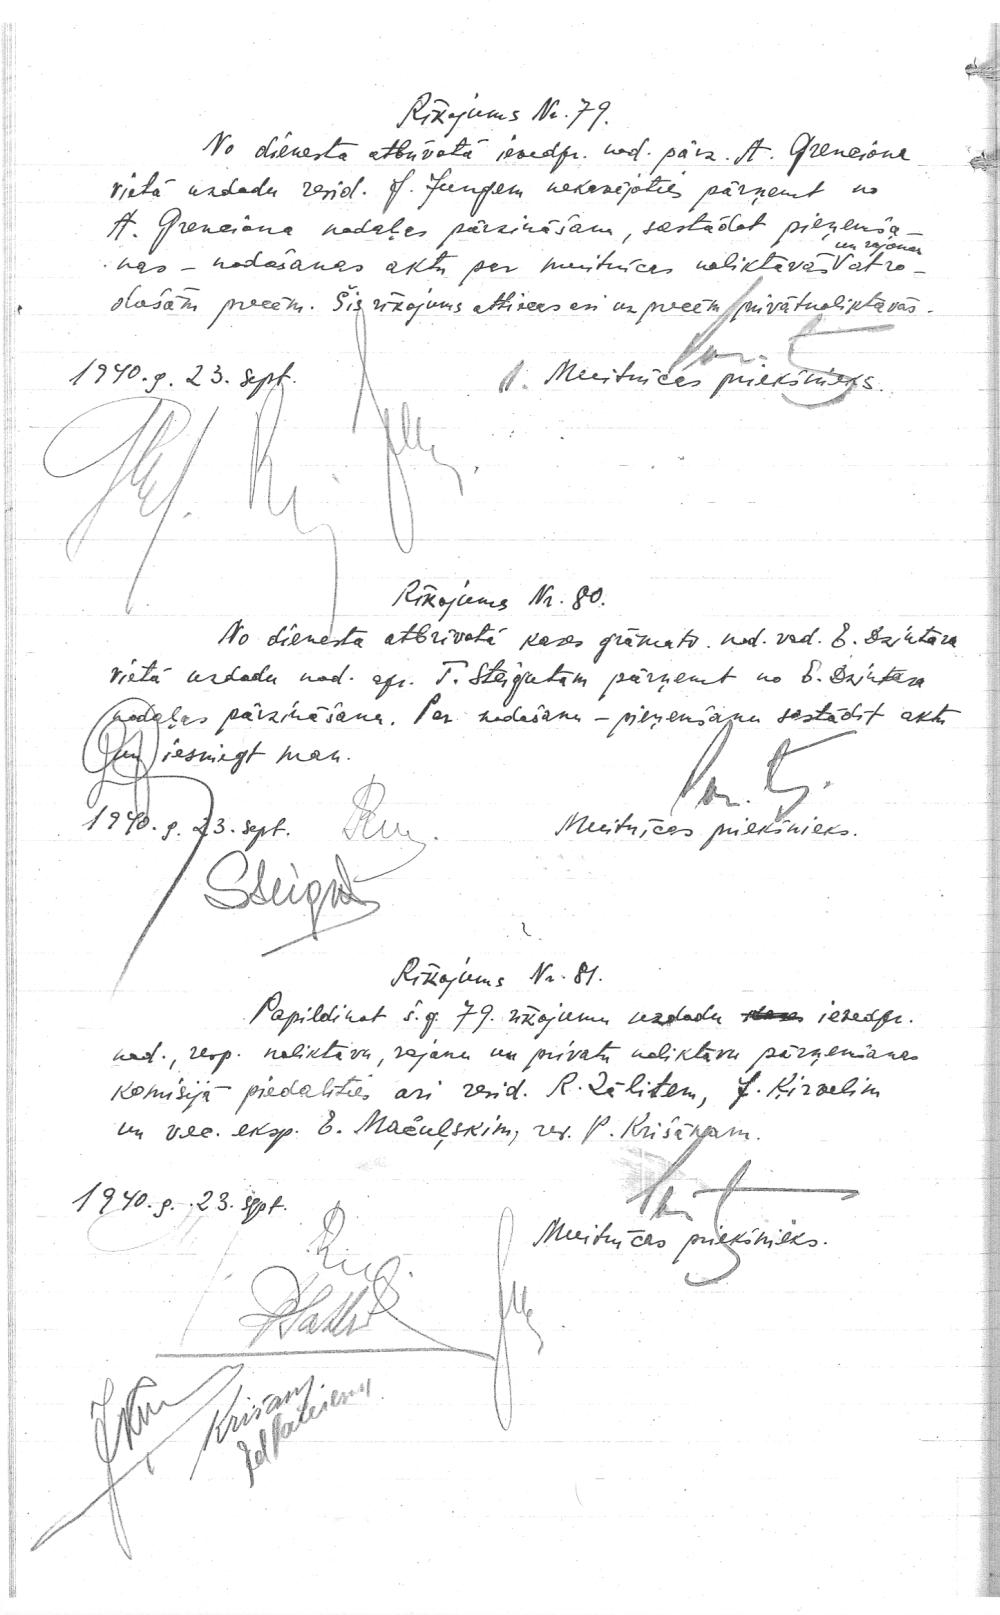 Rīkojums Nr. 79.
No dienesta atbrīvotā ievedpr. nod. pārz. A. Grenciona
vietā uzdodu revid. J. Jungem nekavējoties pārņemt no
A. Grenciona nodaļas pārzināšanu, sastādot pieņemša-
un rajonos
nas - nodošanas aktu par muitnīcas noliktavās V atro-
došām precēm. Šis rīkojums attiecas arī uz precēm privātnoliktavās.
1940. g. 23. sept.
Muitnīcas priekšnieks.
Rīkojums Nr. 80.
No dienesta atbrīvotā kases grāmatv. nod. vad. E. Dzintara
vietā uzdodu nod. T. Steigutam pārņemt no E. Dzintara
nodaļas pārzināšanu. Par nodošanu - pieņemšanu sastādīt aktu
un iesniegt man.
1940. g. 23. sept.
Muitnīcas priekšnieks.
Steigut
Rīkojums Nr. 81.
Papildinot š. g. 79. rīkojumu uzdodu ievedpr.
nod., resp. noliktavu, rajonu un privātu noliktavu pārņemšanas
komisijā piedalīties arī revid. R. Zālītem, J. Ķirzelim
un vec. eksp. E. Mačuļskim, rev. P. Krišānam.
1940. g. 23. sept.
Muitnīcas priekšnieks.
Krišans